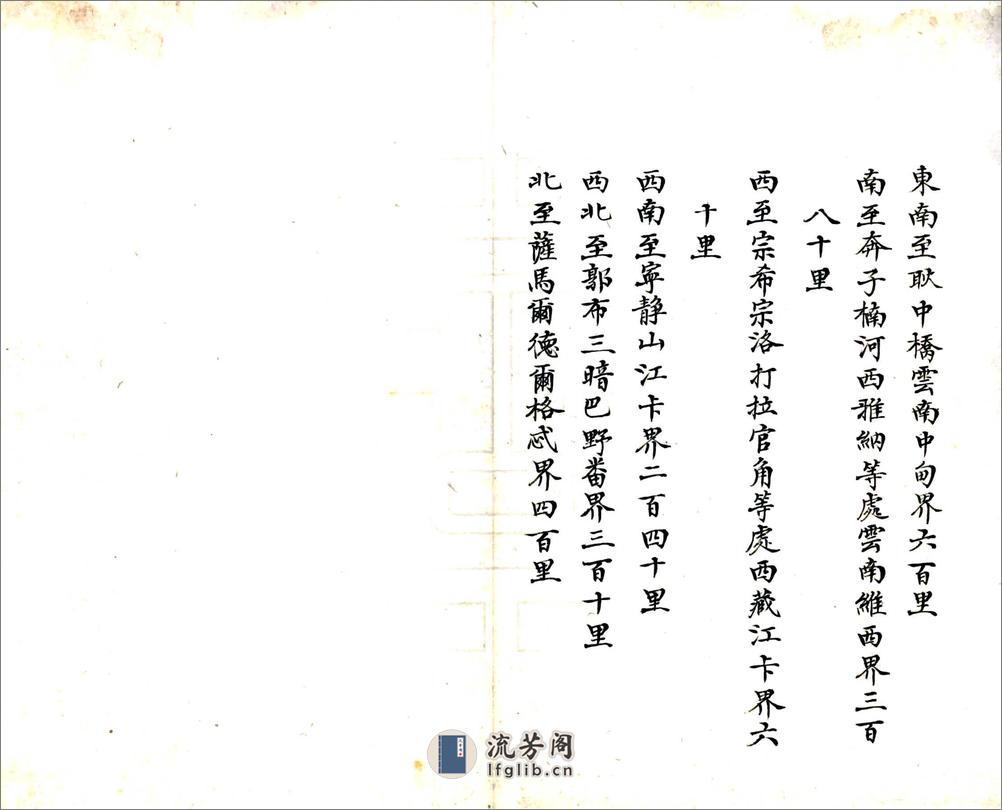 東南至耿中橋雲南中甸界六百里
南至奔子楠河西雅納等處雲南維西界三百
八十里
西至宗希宗洛打拉官角等處西藏江卡界六
十里
西南至寧静山江卡界二百四十里
西北至郭布三暗巴野番界三百十里
北至薩馬爾德爾格忒界四百里
流芳阁
lfglib.cn